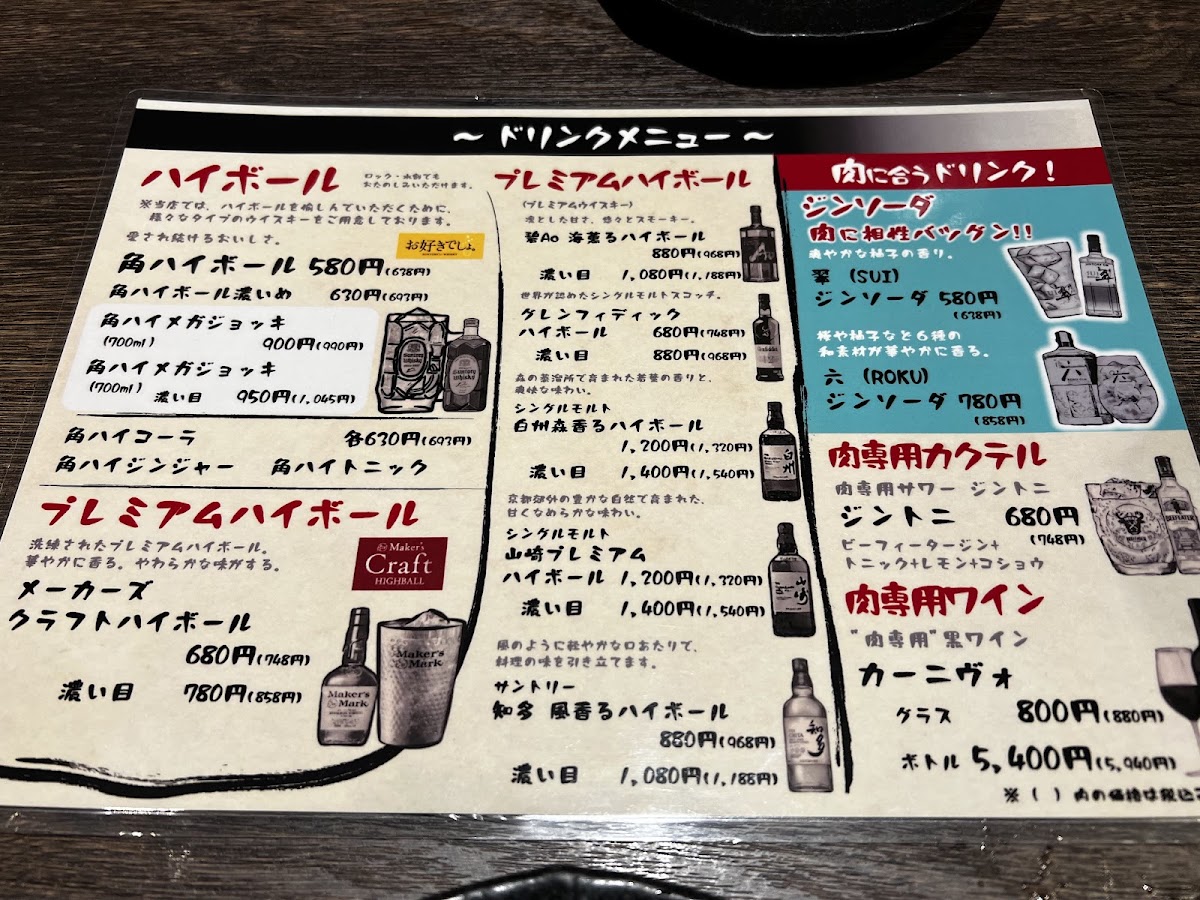 ~ ドリンクメニュー ~
ハイボール
ロック・水割でも
おたのしみいただけます。
※当店では、ハイボールを愉しんでいただくために、
様々なタイプのウイスキーをご用意しております。
愛され続けるおいしさ。
お好きでしょ。
角ハイボール 580円(638円)
角ハイボール濃いめ 630円(693円)
角ハイメガジョッキ
(700ml) 900円(990円)
角ハイメガジョッキ
(700ml) 濃い目 950円(1,045円)
角ハイコーラ 各630円(693円)
角ハイジンジャー 角ハイトニック
プレミアムハイボール
洗練されたプレミアムハイボール。
華やかに香る。やわらかな味がする。
Maker's
Craft
HIGHBALL
メーカーズ
クラフトハイボール
680円(748円)
濃い目 780円(858円)
Maker's
Mark
Maker's
Mark
プレミアムハイボール
(プレミアムウイスキー)
凛とした甘さ、悠々とスモーキー。
碧Ao 海薫るハイボール
880円(968円)
濃い目 1,080円(1,188円)
Ao
世界が認めたシングルモルトスコッチ。
グレンフィディック
ハイボール 680円(748円)
濃い目 880円(968円)
森の蒸溜所で育まれた若葉の香りと、
爽快な味わい。
シングルモルト
白州森香るハイボール
1,200円(1,320円)
濃い目 1,400円(1,540円)
白州
京都郊外の豊かな自然で育まれた、
甘くなめらかな味わい。
シングルモルト
山崎プレミアム
ハイボール 1,200円(1,320円)
濃い目 1,400円(1,540円)
山崎
風のように軽やかな口あたりで、
料理の味を引き立てます。
サントリー
知多 風香るハイボール
880円(968円)
濃い目 1,080円(1,188円)
知多
肉に合うドリンク!
ジンソーダ
肉に相性バツグン!!
爽やかな柚子の香り。
翠 (SUI)
ジンソーダ 580円
(638円)
翠
桜や柚子など6種の
和素材が華やかに香る。
六 (ROKU)
ジンソーダ 780円
(858円)
六
肉専用カクテル
肉専用サワー ジントニ
ジントニ 680円
(748円)
ビーフィータージン+
トニック+レモン+コショウ
BEEFEATER
肉専用ワイン
"肉専用"黒ワイン
カーニヴォ
グラス 800円(880円)
ボトル 5,400円(5,940円)
※ ( ) 内の価格は税込